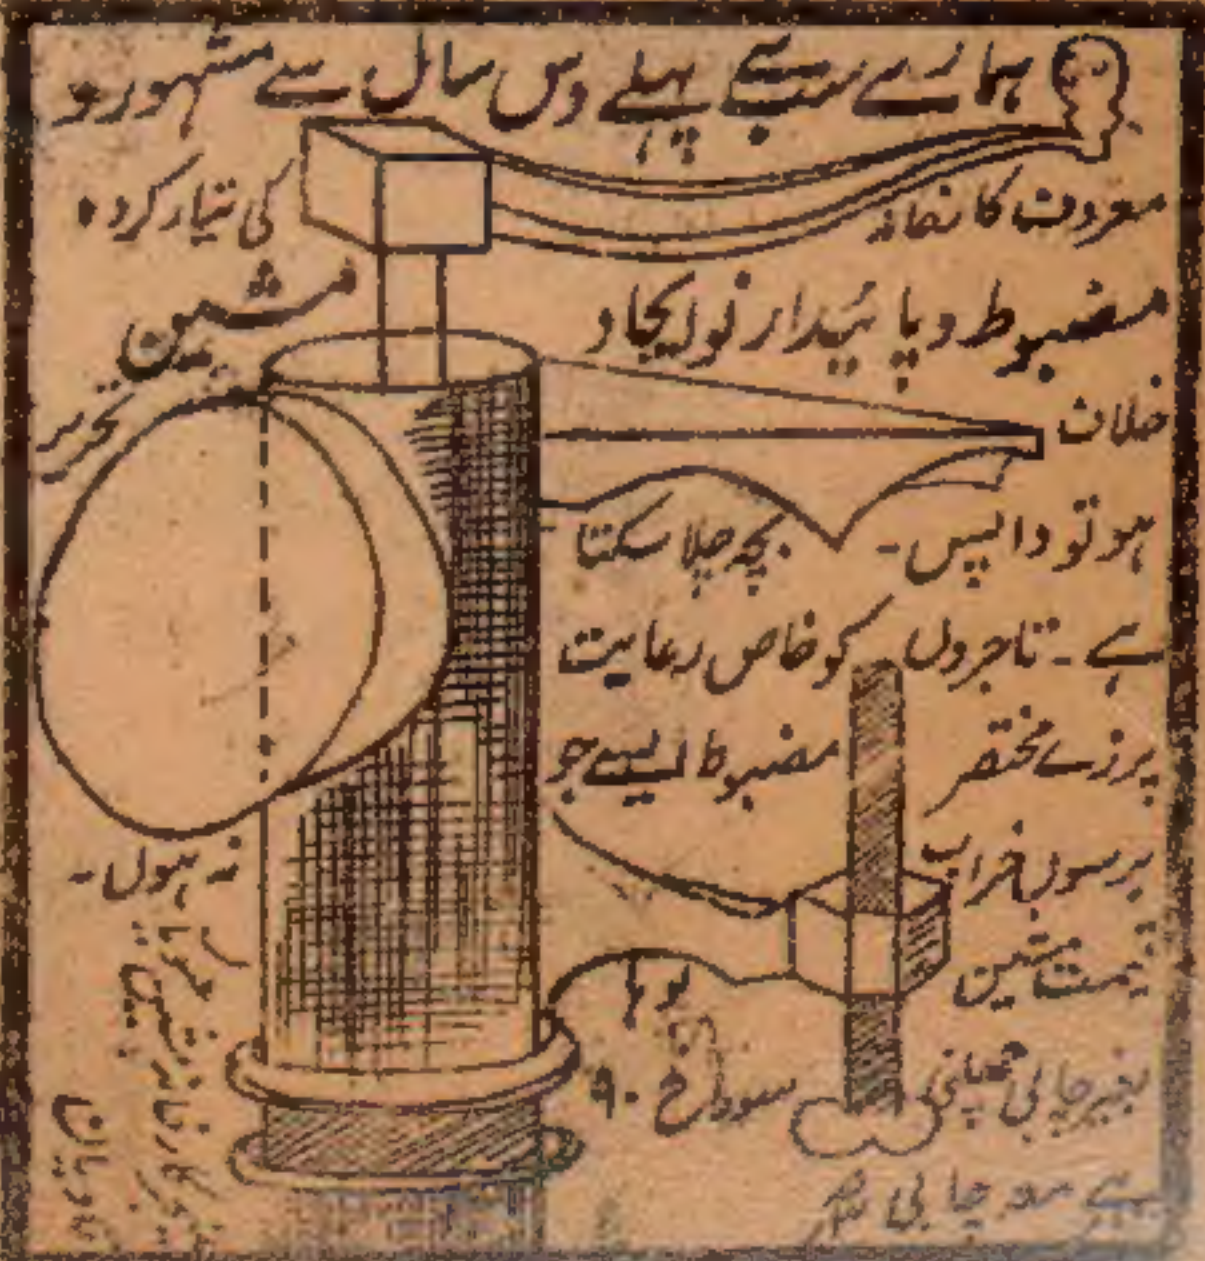 ہمارے سب سے پہلے دس سال سے مشہور و
معروف کارخانہ کی تیار کردہ
مضبوط و پائیدار نو ایجاد مشین
خلاف تحریر
ہو تو واپس ۔ بچہ چلا سکتا
ہے ۔ تاجروں کو خاص رعایت
پرزے مختصر مضبوط ایسے جو
برسوں خراب نہ ہوں ۔
قیمت مشین
سوراخ ۹۰
بغیر چابی
ہے معہ چابی